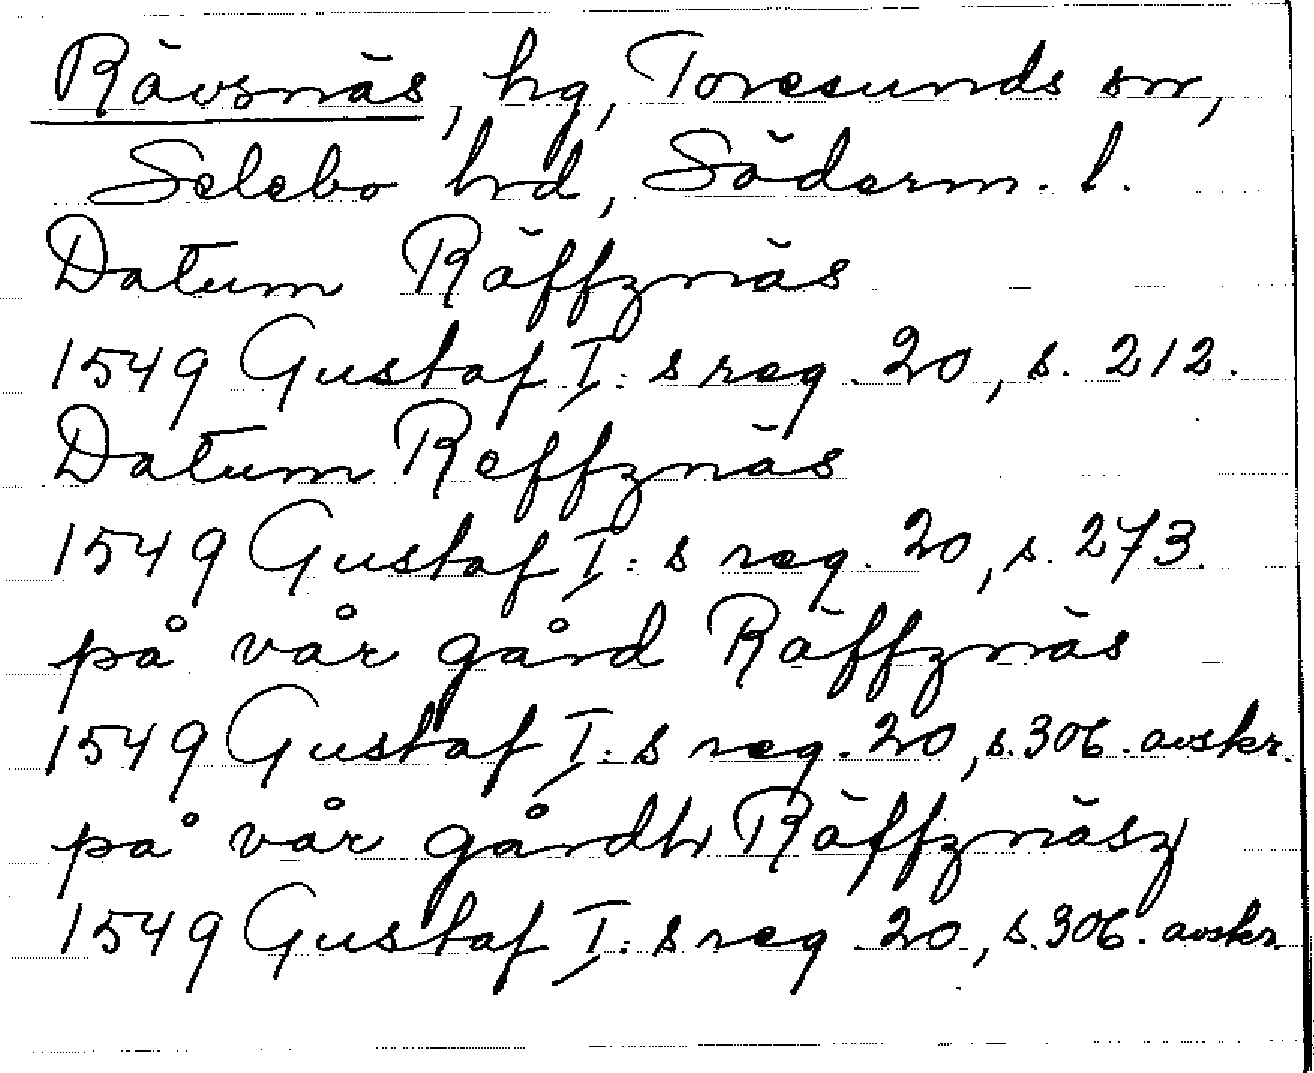 Rävsnäs, hg, Toresunds sn,
Selebo hd, Söderm. l.
Datum Räffznäs
1549 Gustaf I:s reg. 20, s. 212.
Datum Reffznäs
1549 Gustaf I:s reg. 20, s. 273.
på vår gård Räffznäs
1549 Gustaf I:s reg. 20, s. 306. avskr.
på vår gårdh Räffznäsz
1549 Gustaf I:s reg. 20, s. 306. avskr.